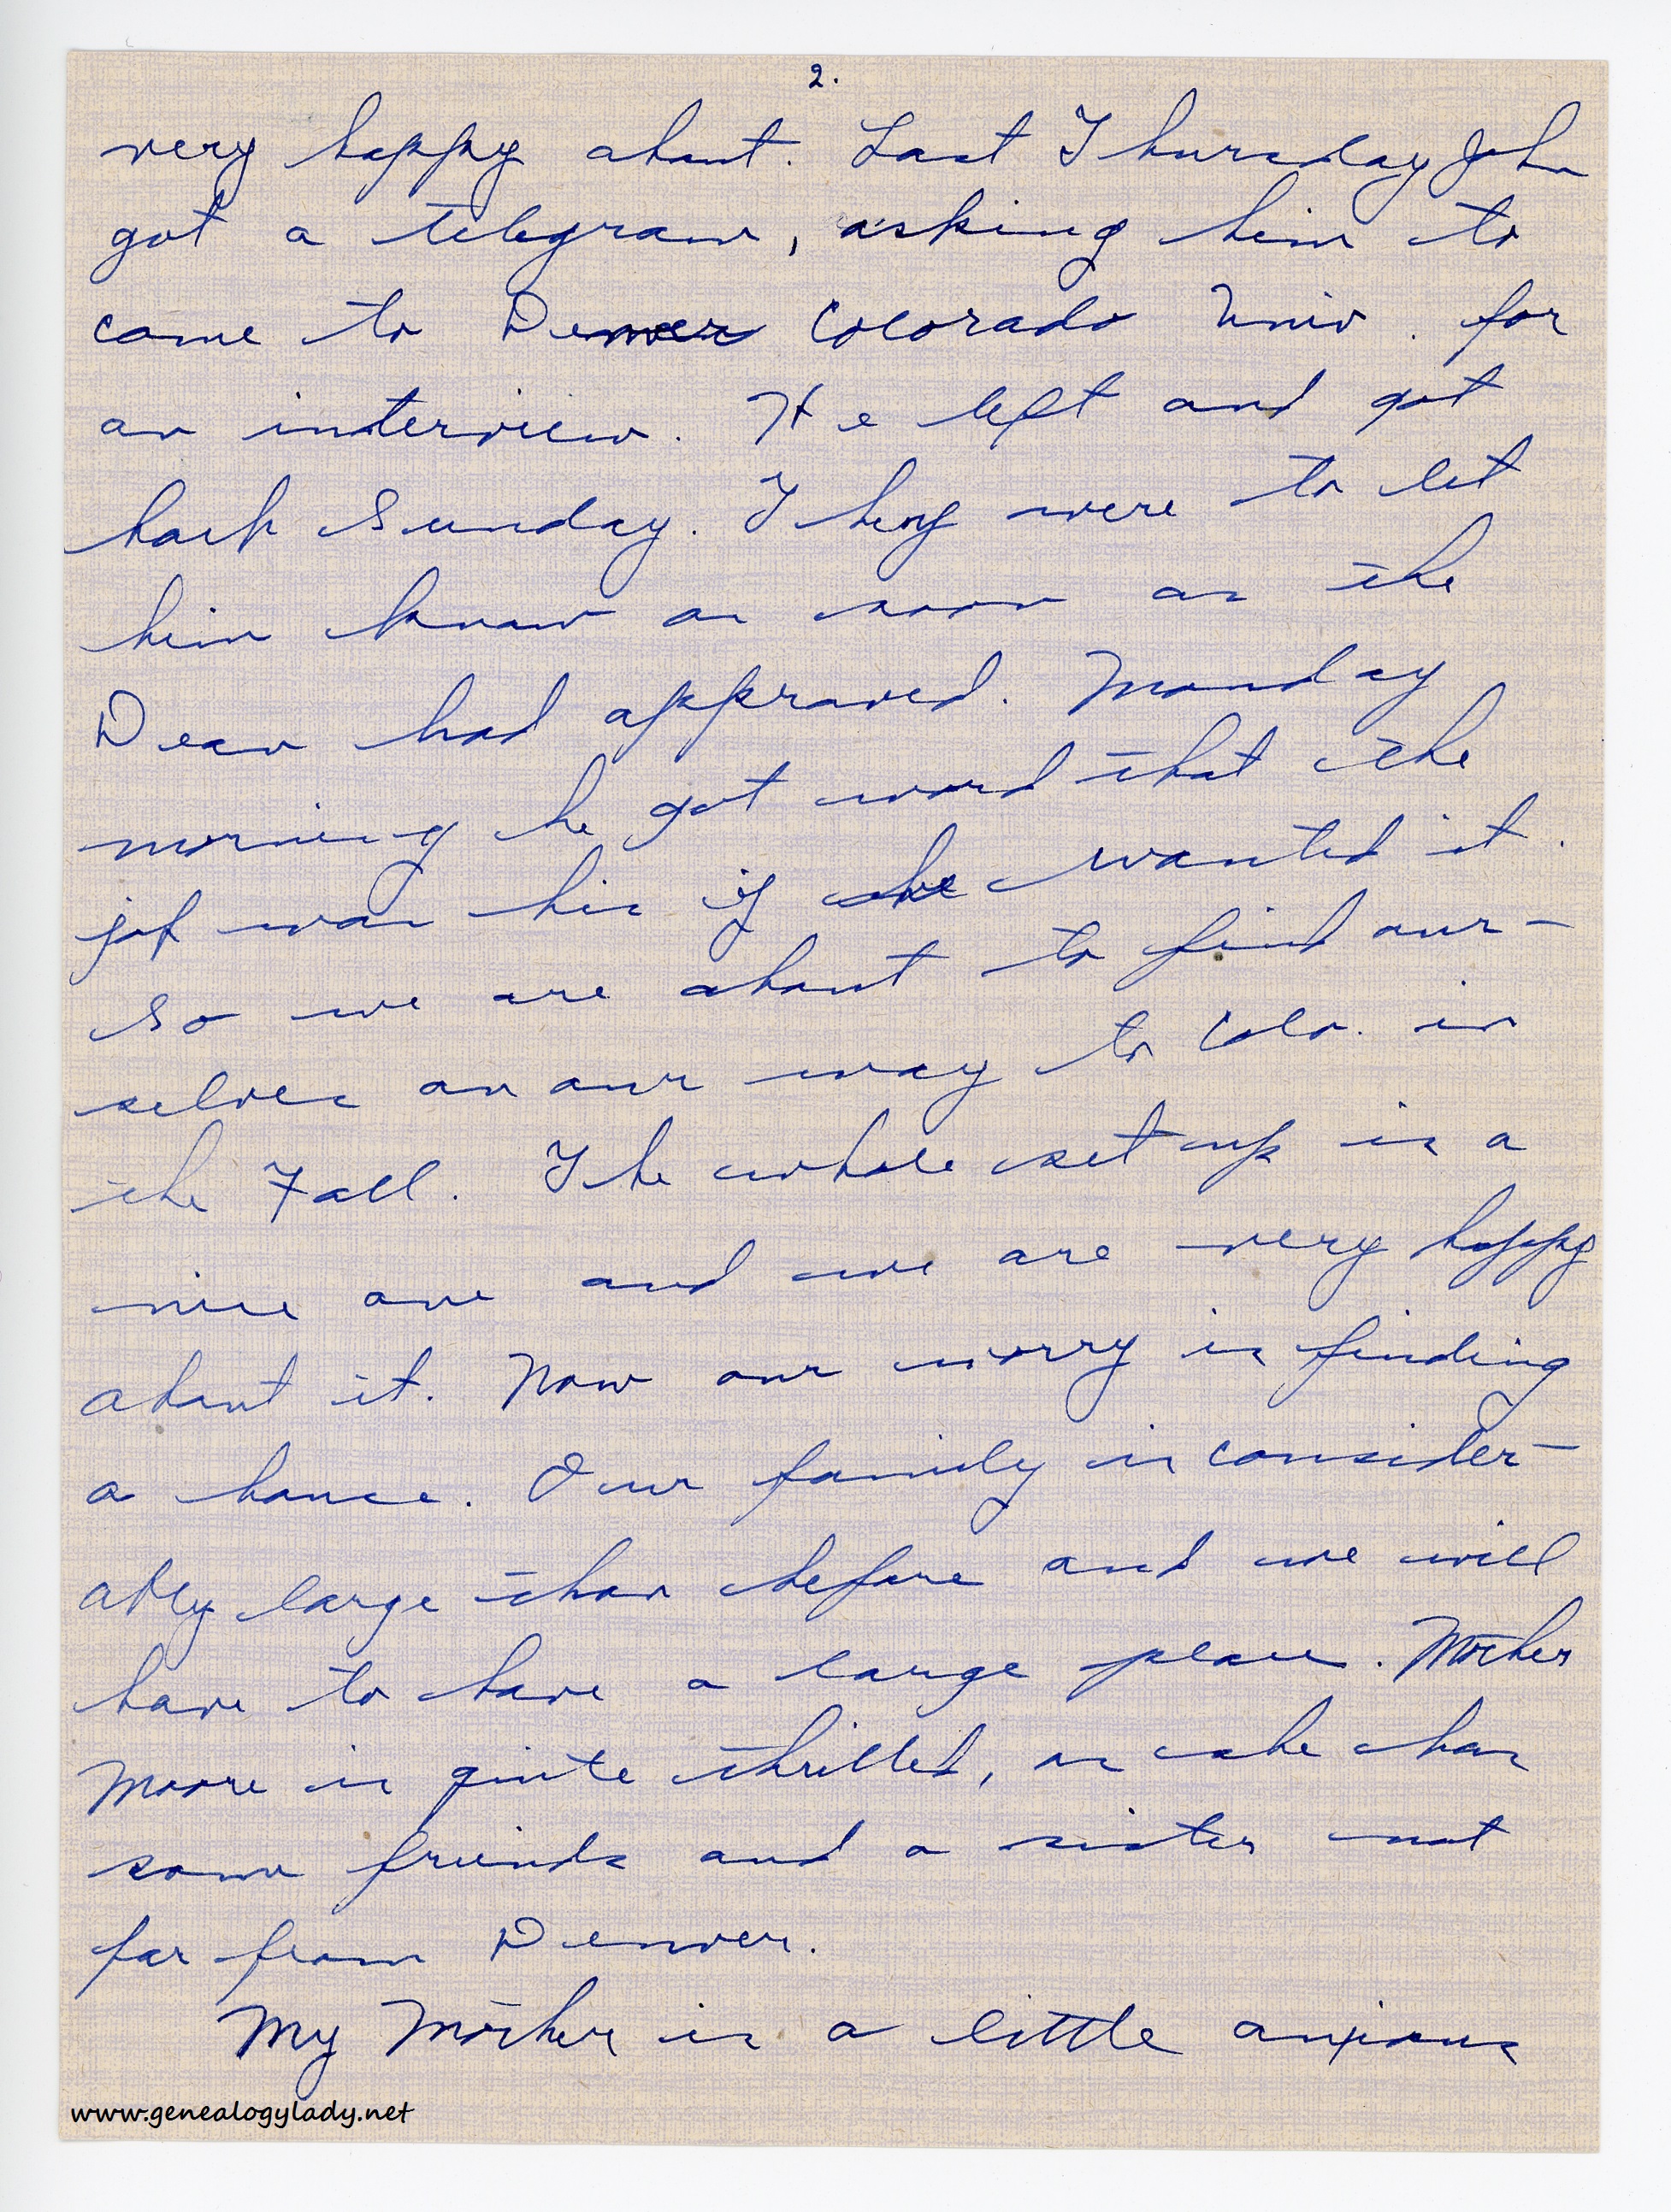 2.
very happy about. Last Thursday John
got a telegram, asking him to
come to Denver Colorado Univ. for
an interview. He left and got
back Sunday. They were to let
him know as soon as the
Dean had approved. Monday
morning he got word that the
job was his if he wanted it.
So we are about to find our-
selves on our way to Colo. in
the Fall. The whole set up is a
nice one and we are very happy
about it. Now our worry is finding
a house. Our family is consider-
ably large than before and we will
have to have a large place. Mother
Moore is quite thrilled, as she has
some friends and a sister not
far from Denver.
My Mother is a little anxious
www.genealogylady.net